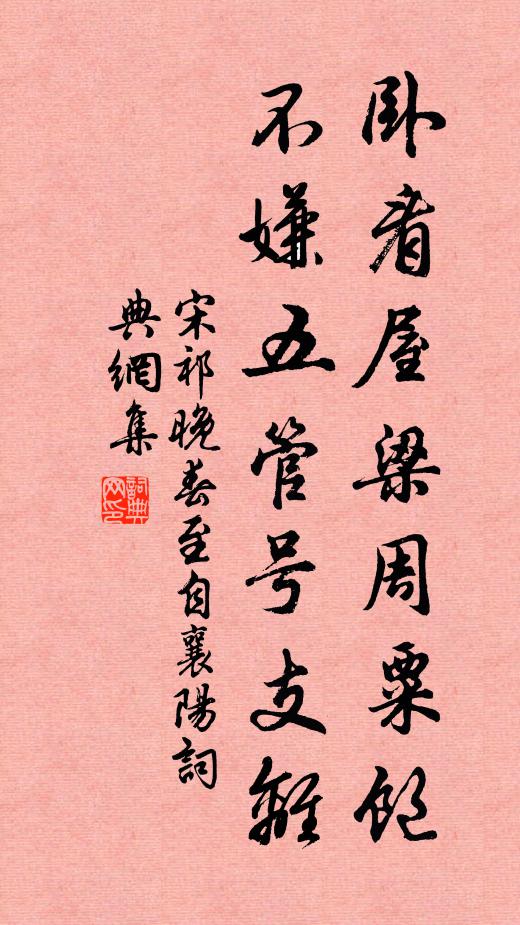 卧看屋梁周粟饱
不嫌五管号支離
宋祁晚春至自襄陽詞
典網集
詞典网印